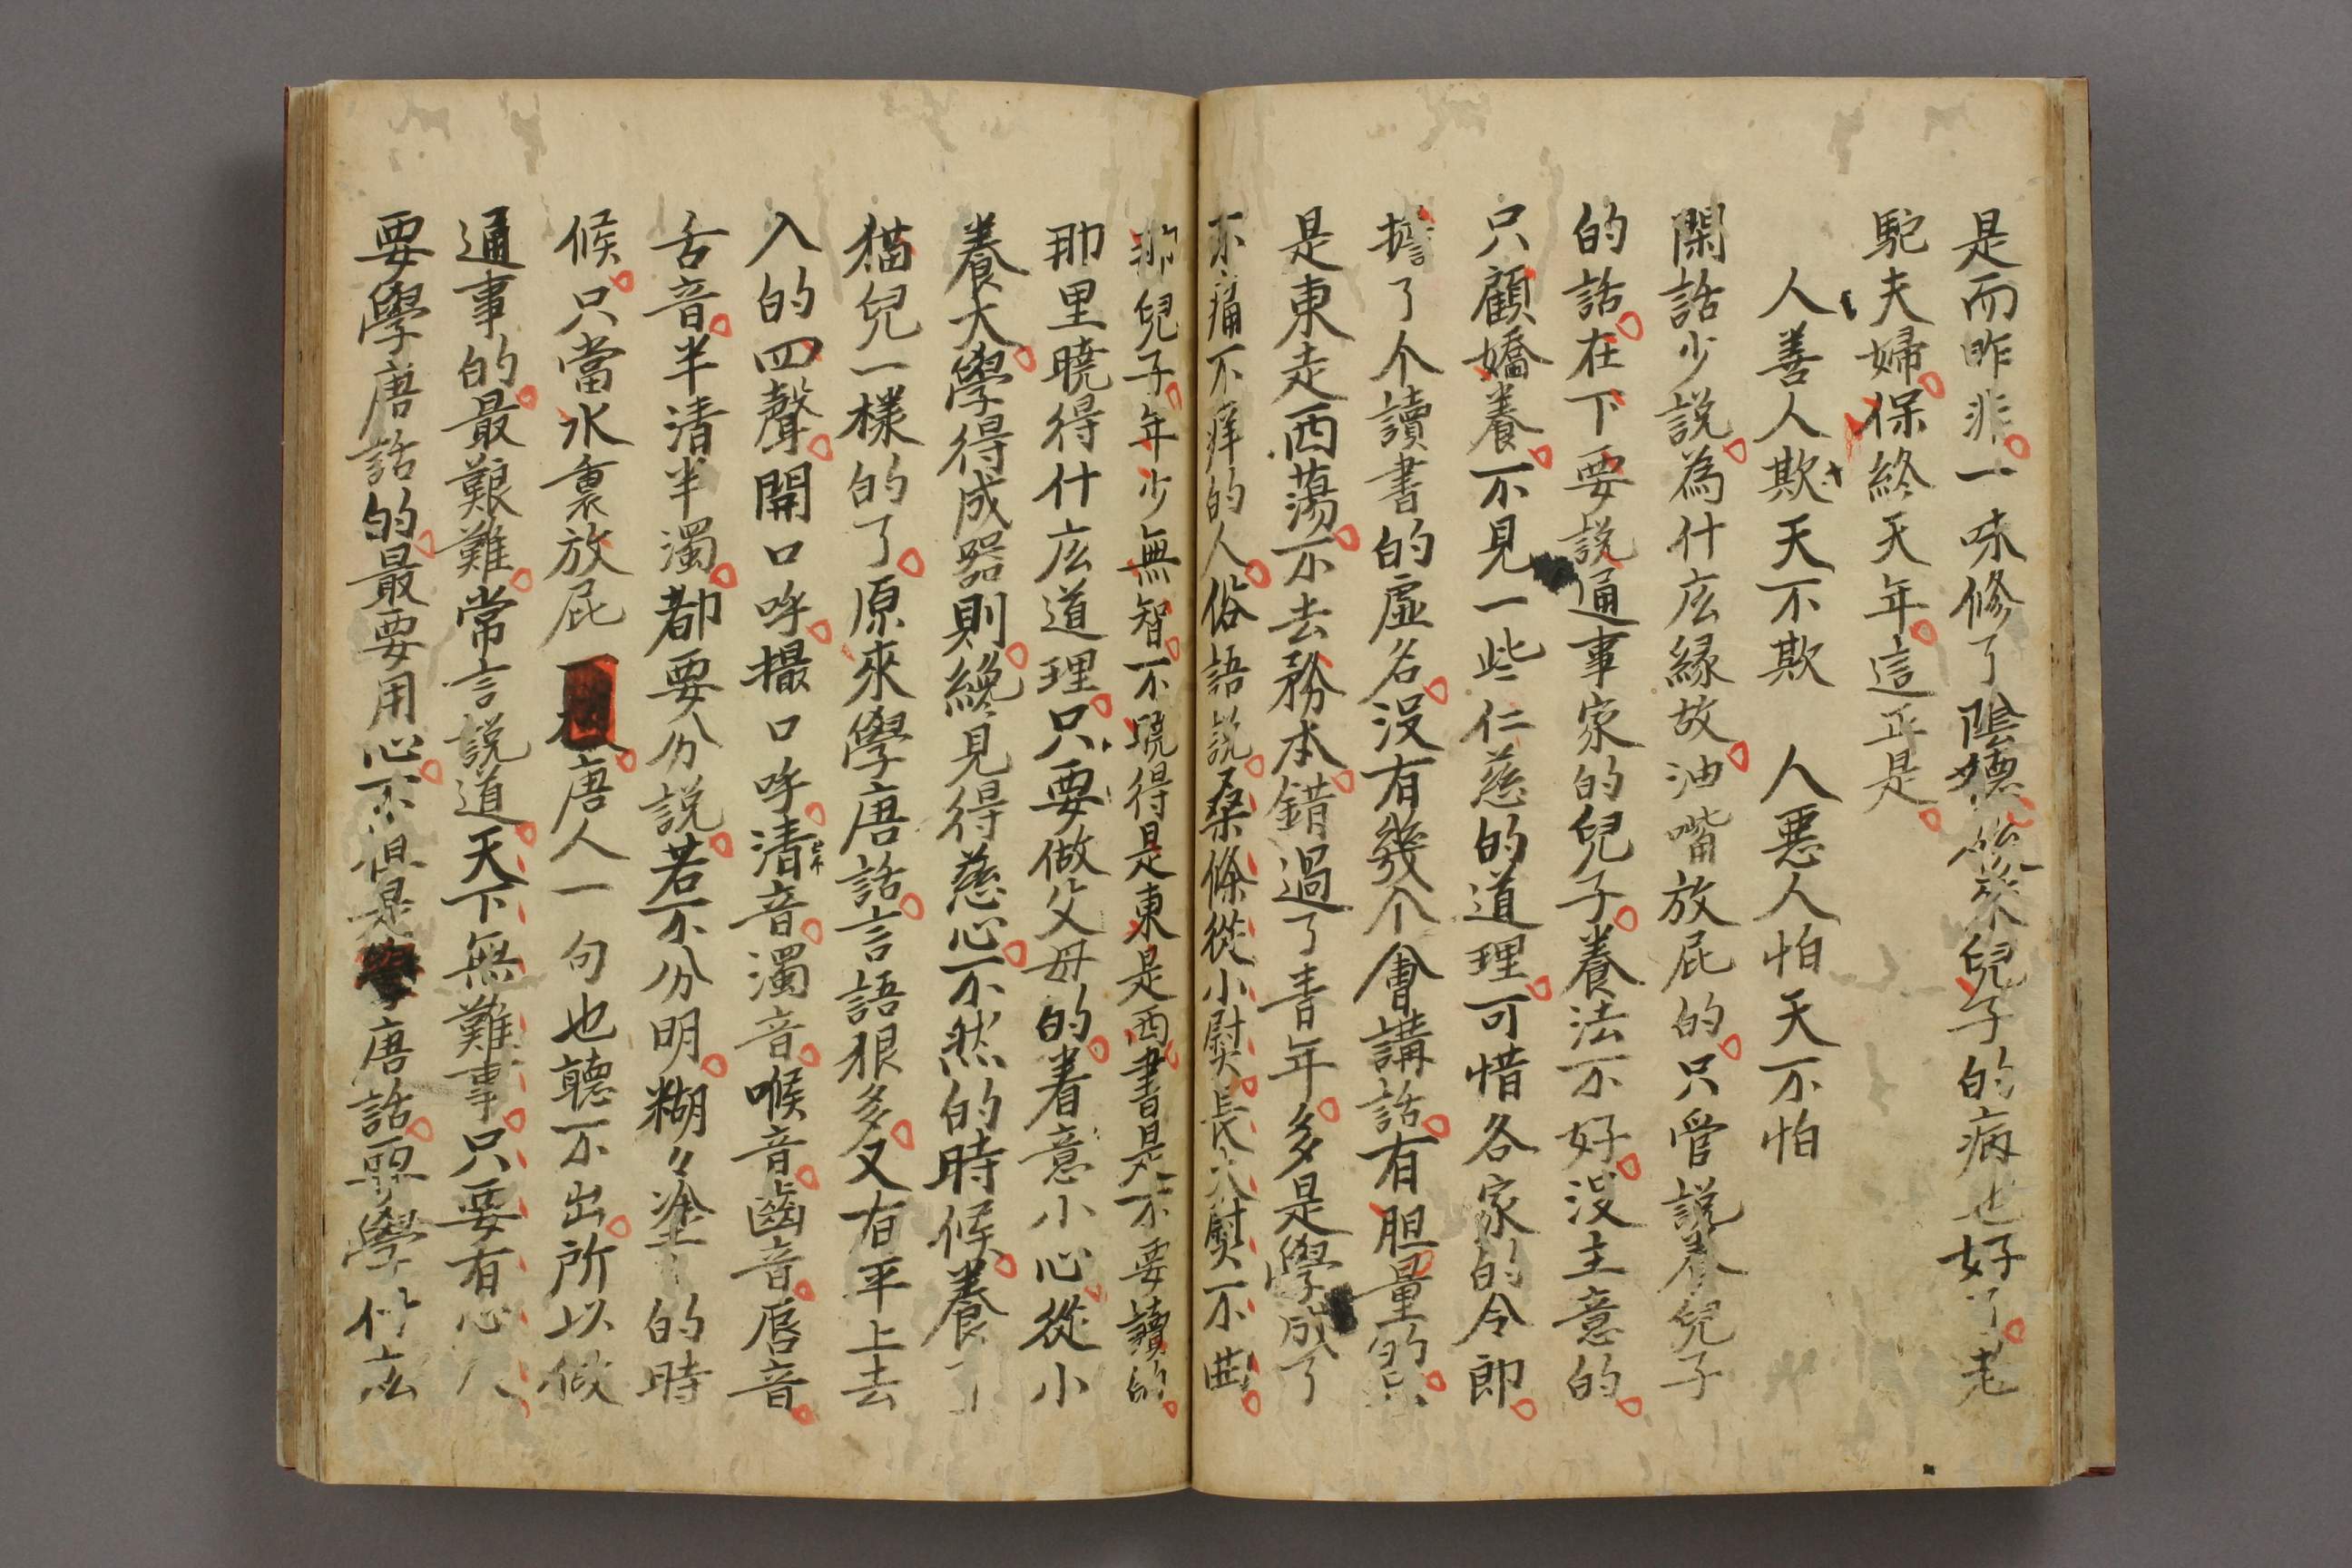 是而昨非一味修了陰德後來兒子的病也好了老
駝夫婦保終天年這正是
人善人欺天不欺　人惡人怕天不怕
閑話少説為什庅緣故油嘴放屁的只管説養兒子
的話在下要説通事家的兒子養法不好沒主意的
只顧嬌養不見一些仁慈的道理可惜各家的令郎
擔了个讀書的虛名沒有幾个會講話有胆量的只
是東走西蕩不去務本錯過了青年多是學成了
不痛不痒的人俗語説桑條從小熨長大熨不曲
那兒子年少無智不曉得是東是西書是不要讀的
那里曉得什庅道理只要做父母的着意小心從小
養大學得成器則纔見得慈心不然的時候養了
猫兒一樣的了原來學唐話言語狠多又有平上去
入的四聲開口呼撮口呼清音濁音喉音齒音唇音
舌音半清半濁都要分説若不分明糊々塗々的時
候只當水裏放屁唐人一句也聽不出所以做
通事的最艱難常言説道天下無難事只要有心人
要學唐話的最要用心不但是唐話耶學什庅